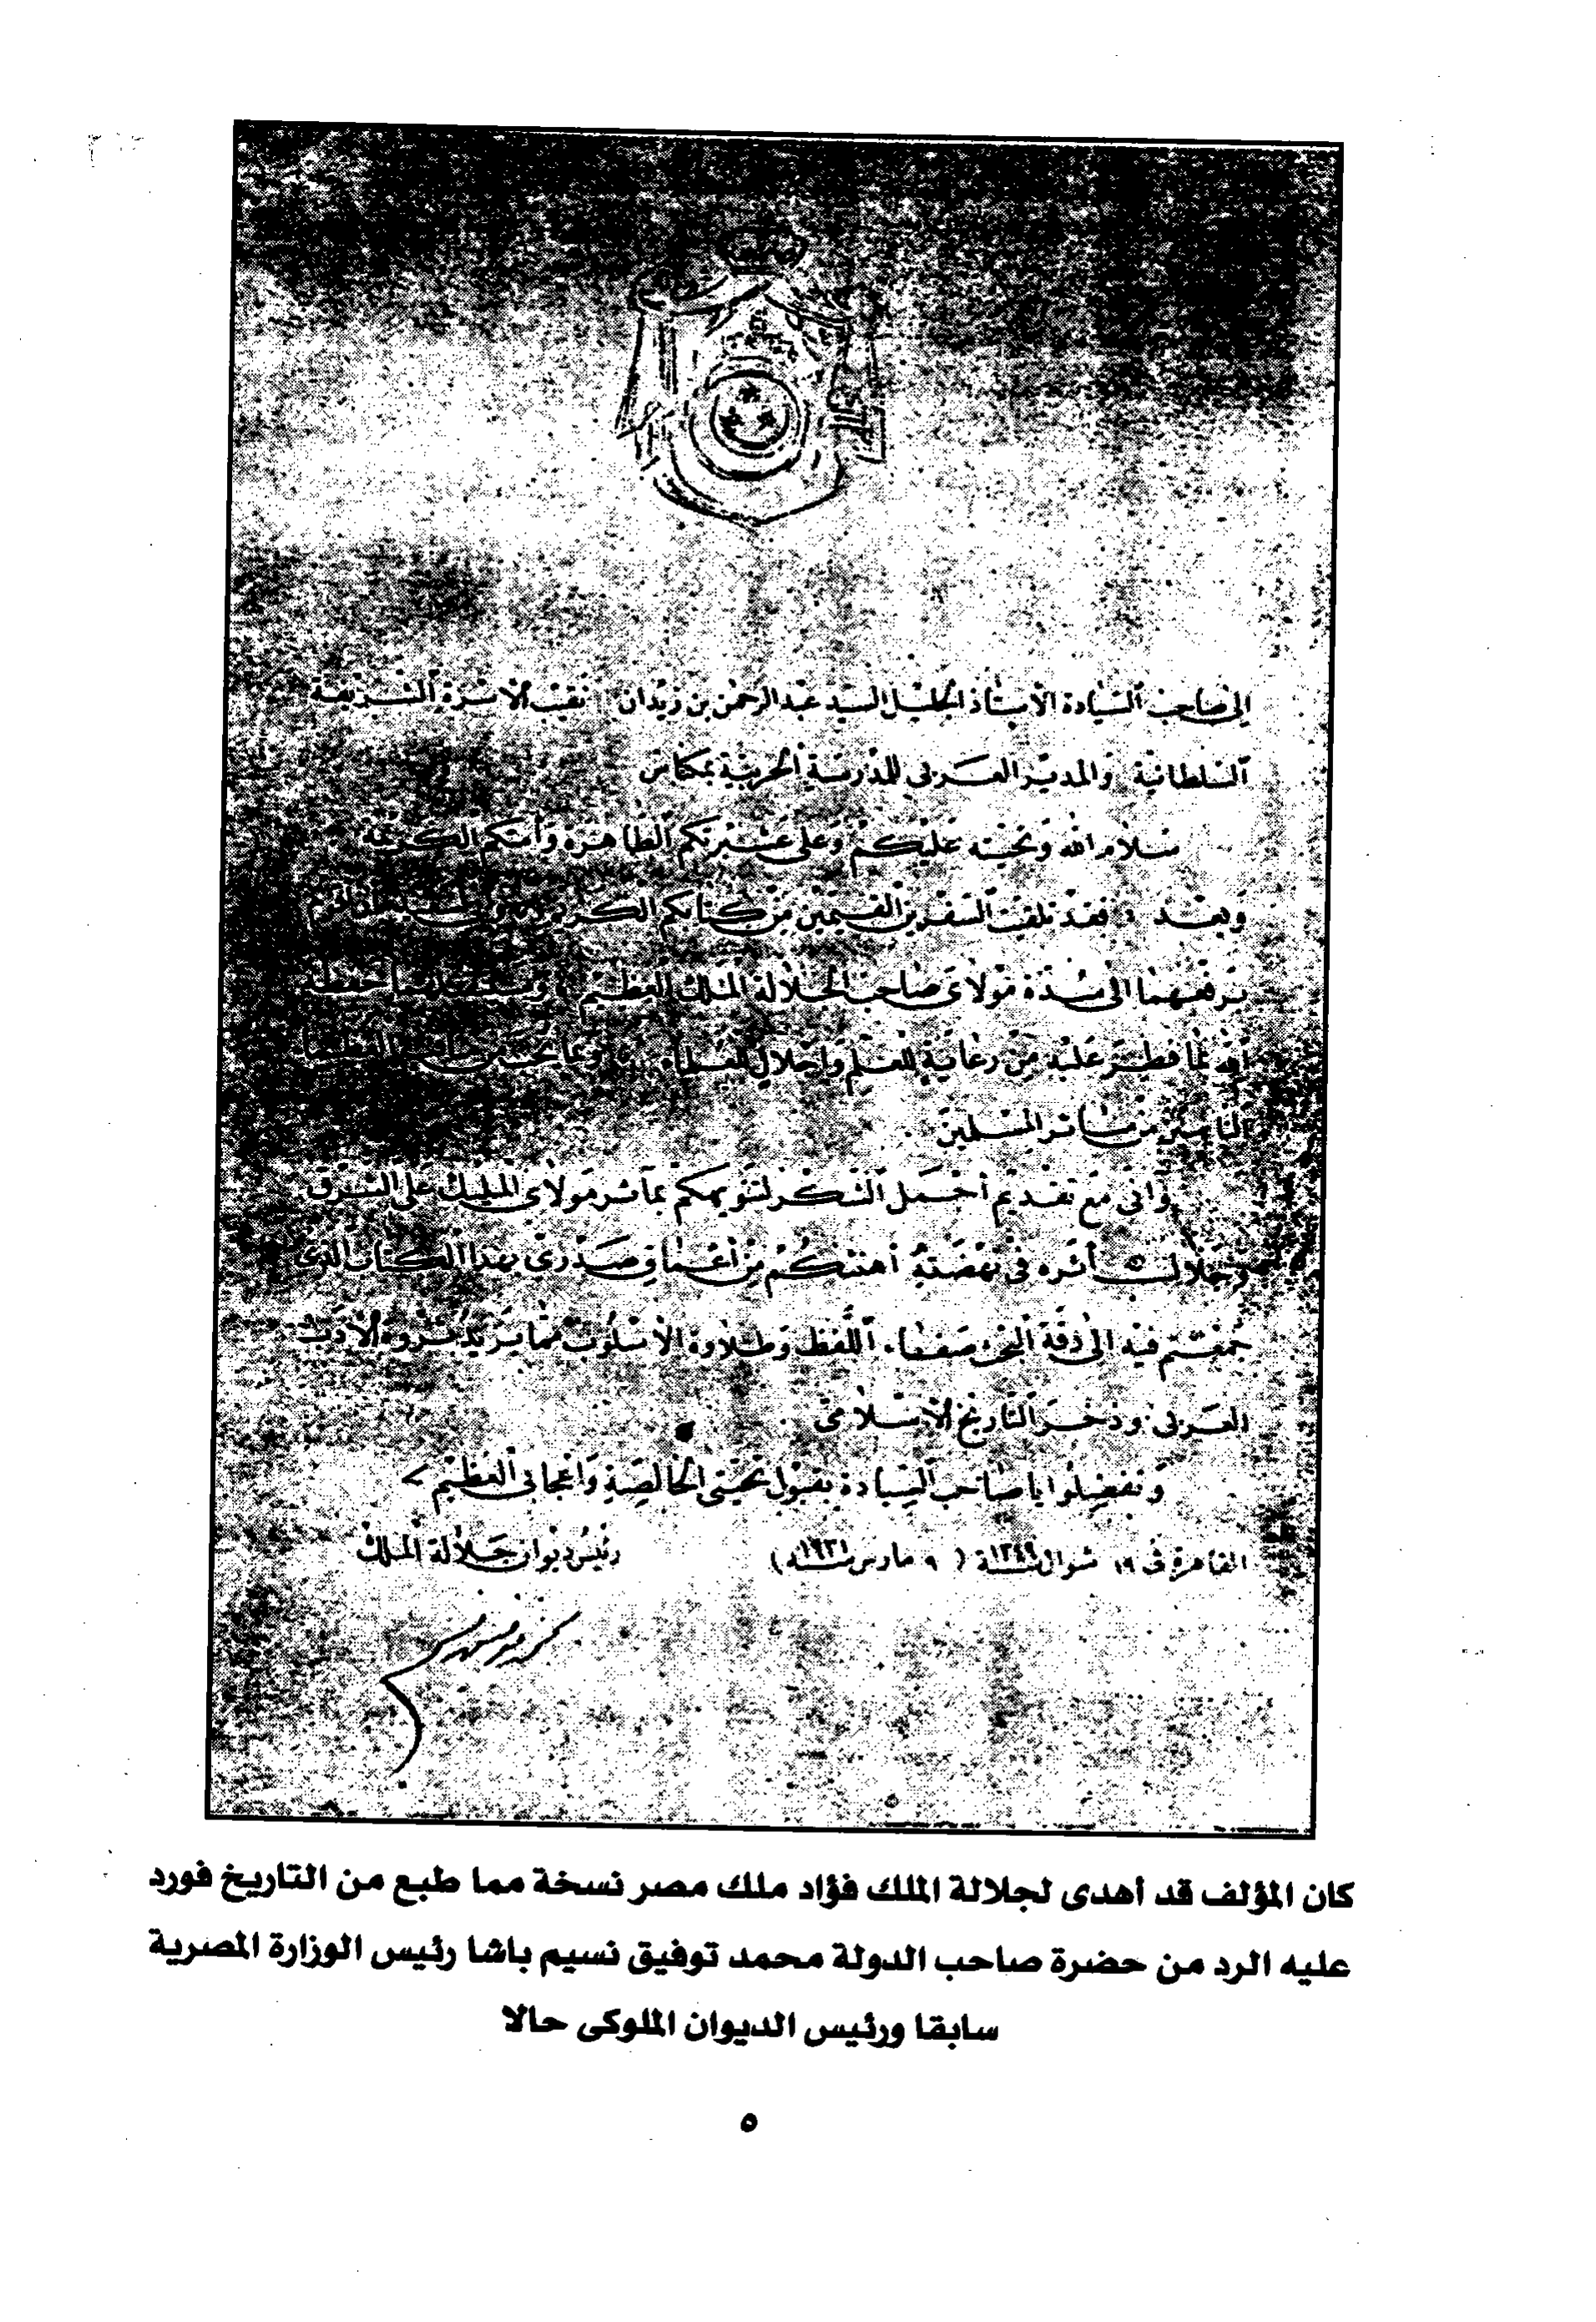 إلى صاحب السيادة الأستاذ الجليل السيد عبد الرحمن بن زيدان نقيب الأسرة الشريفة
السلطانية والمدير العربى للمدرسة الحربية بمكناس
سلام الله وتحيته عليكم وعلى عشيرتكم الطاهرة وأمتكم الكريمة
وبعد ، فقد تلقيت السفرين القيمين من كتابكم الكريم
برفعهما الى سدة مولاى صاحب الجلالة الملك العظيم حفظه
الله لما فطر عليه من رعاية للعلم وإجلال للعلماء
من سائر المسلمين
وانى مع تقديم أجمل الشكر لتنويهكم بمآثر مولاى المليك على الشرق
وجلالت أثره فى نهضته أهنئكم من أعماق صدرى بهذا الكتاب الذى
جمعتم فيه الى دقة البحث صفاء اللفظ وطلاوة الأسلوب مما يزيد ثروة الأدب
العربى وذخر التاريخ الاسلامى
وتفضلوا يا صاحب السيادة بقبول تحيتى الخالصة وإعجابى العظيم
القاهرة فى ١٩ شوال سنة ١٣٤٩ ( ٩ مارس سنة ١٩٣١ ) رئيس ديوان جلالة الملك
كان المؤلف قد أهدى لجلالة الملك فؤاد ملك مصر نسخة مما طبع من التاريخ فورد
عليه الرد من حضرة صاحب الدولة محمد توفيق نسيم باشا رئيس الوزارة المصرية
سابقا ورئيس الديوان الملوكى حالا
٥